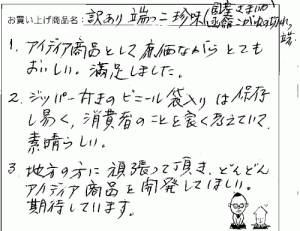 お買い上げ商品名：訳あり 端っこ珍味(国産さきいか
函館こがね切れ端
1. アイディア商品として廉価ながらとても
おいしい。満足しました。
2. ジッパー付きのビニール袋入りは保存
し易く、消費者のことを良く考えていて
素晴らしい。
3. 地方の方に頑張って頂き、どんどん
アイディア商品を開発してほしい。
期待しています。